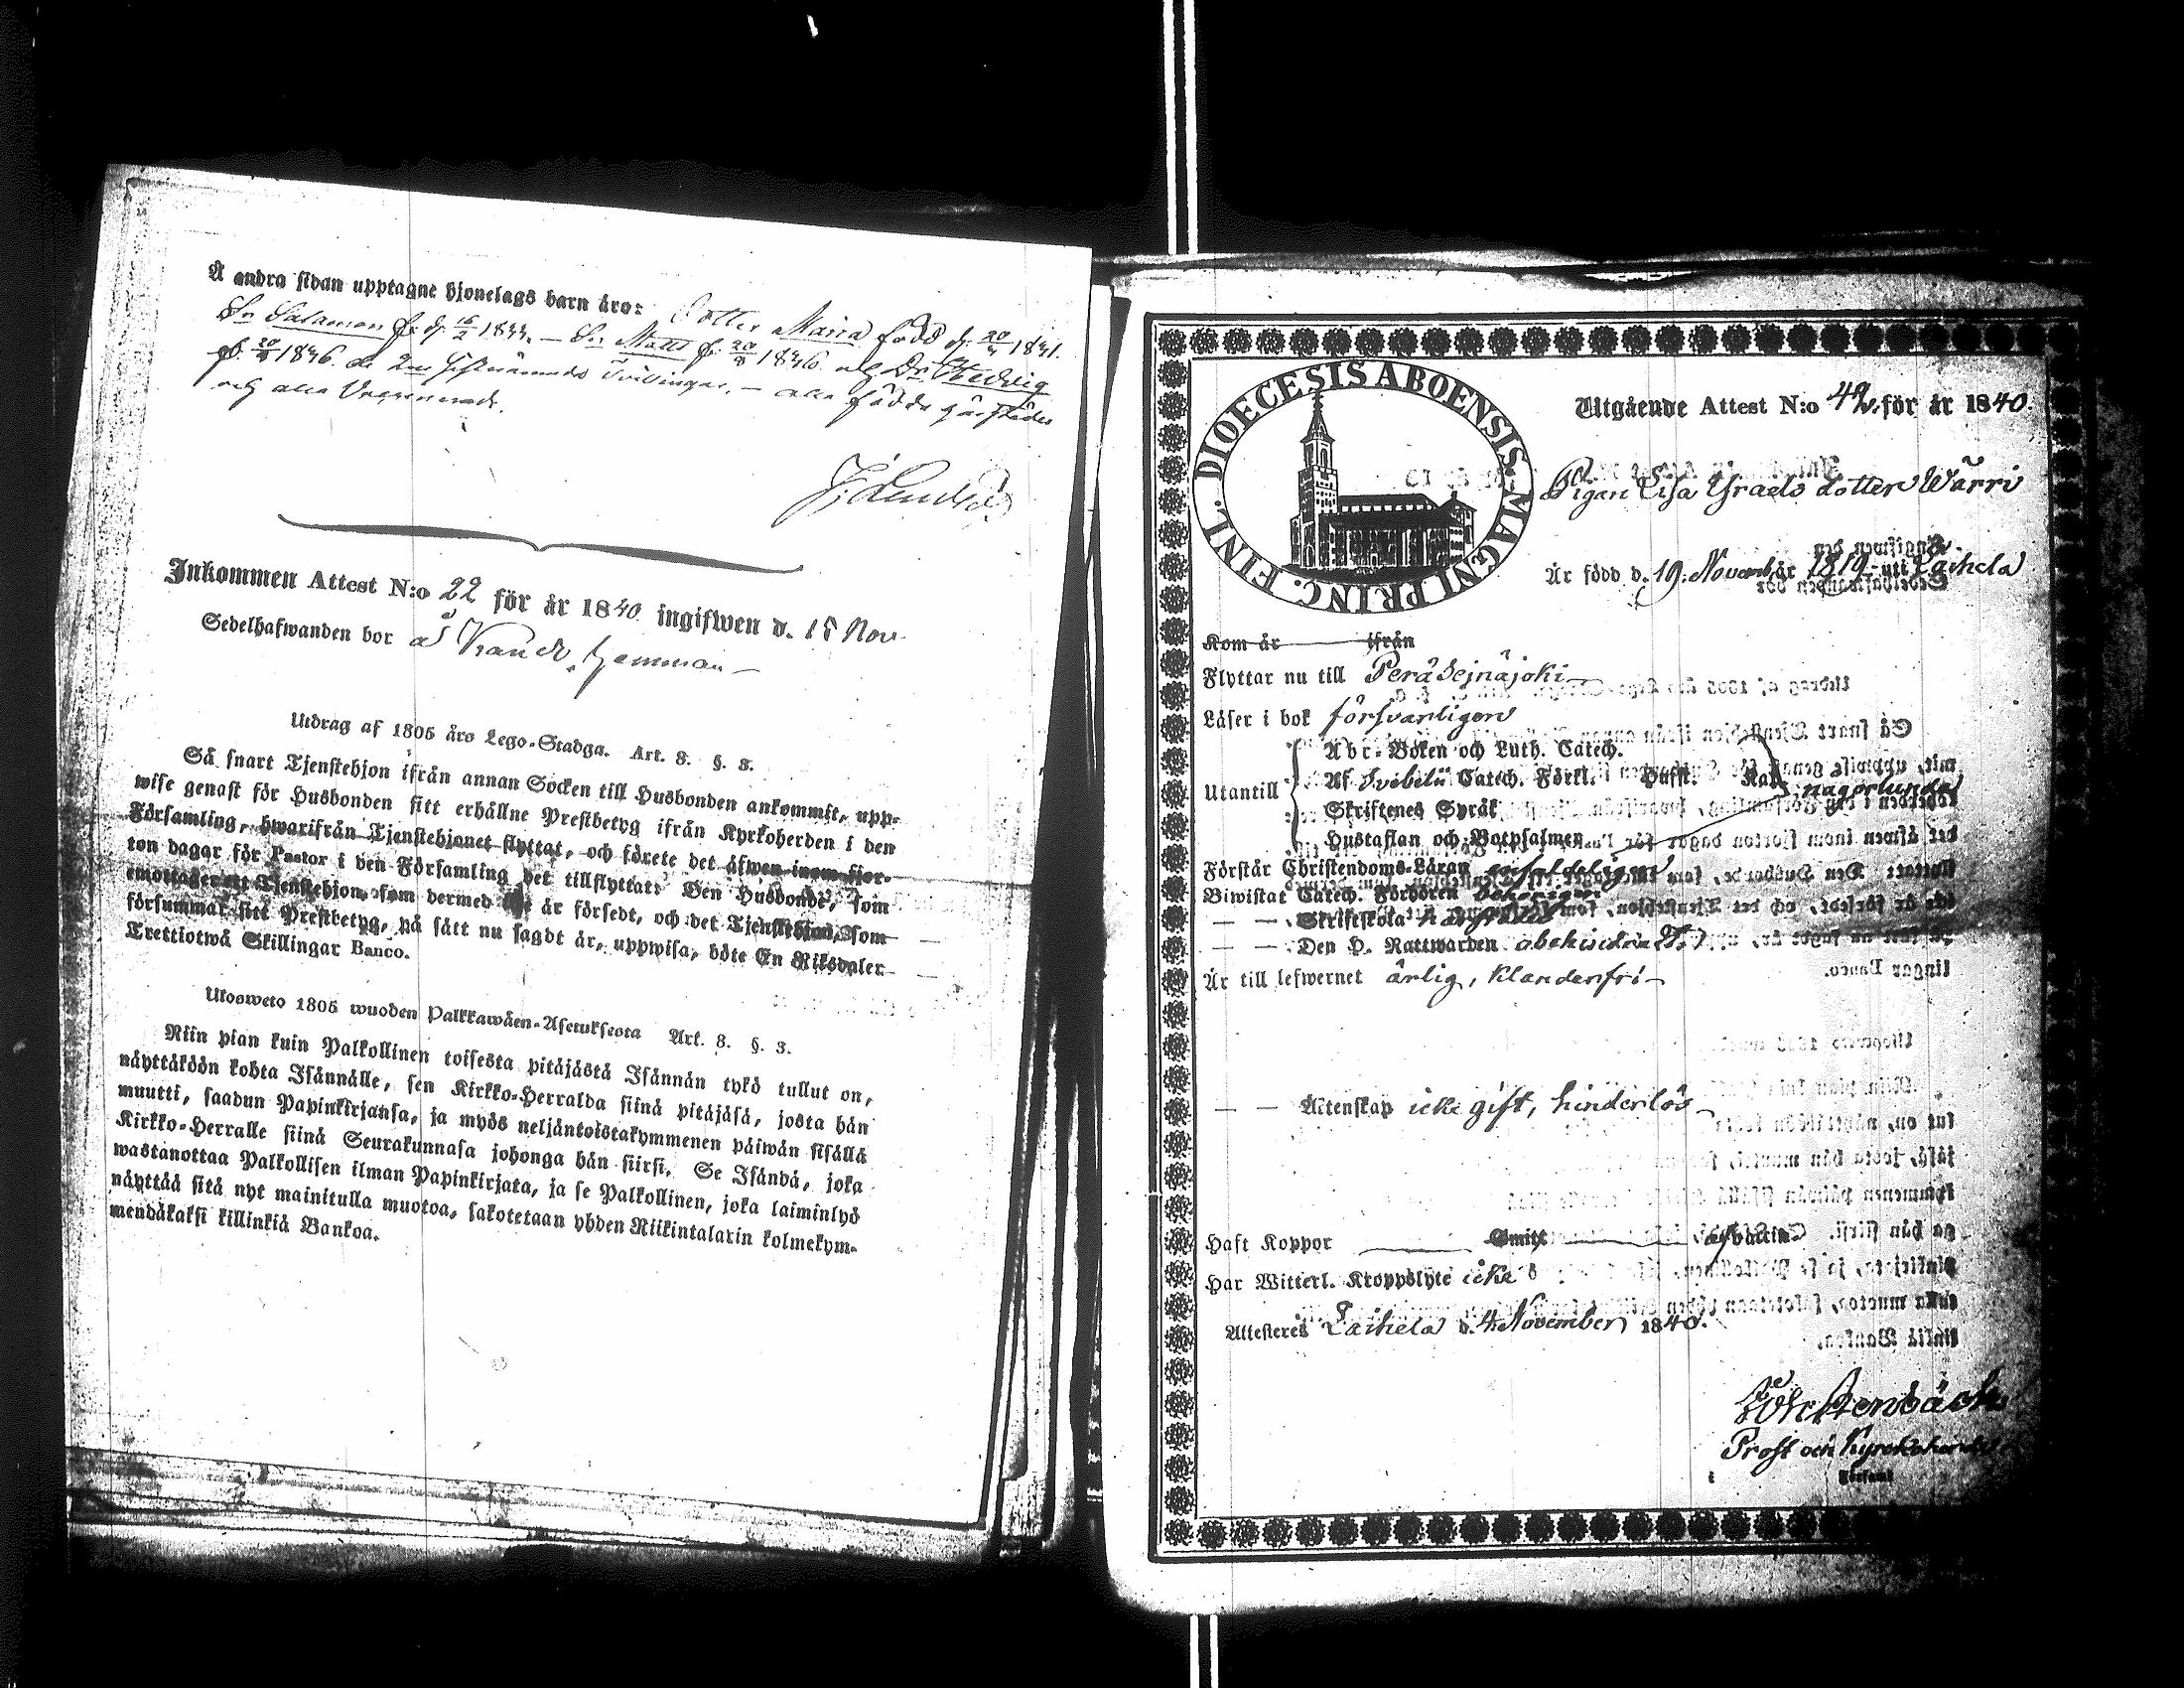 Å andra sidan upptagne hjonelags barn äro: Dotter Maria född d. 20/4 1841.
Sn Salamon f. d. 16/2 1844. — Sn Matts f. 20/8 1846. och Dr Hedvig
f. 20/8 1846. de 2ne sistnämnde Tvillingar. — alla födde härstädes
och alla Vaccinerade.
Inkommen Attest N:o 22 för år 1840 ingifwen d. 15 Nov.
Sedelhafwanden bor å hemman —
Utdrag af 1805 års Lego-Stadga. Art. 8. §. 3.
Så snart Tjenstehjon ifrån annan Socken till Husbonden ankommit, upp-
wise genast för Husbonden sitt erhållne Prestbetyg ifrån Kyrkoherden i den
Församling, hwarifrån Tjenstehjonet flyttat, och förete det äfwen inom fjor-
ton dagar för Pastor i den Församling det tillflyttat: Den Husbonde, som
emottager ett Tjenstehjon, som dermed ej är försedt, och det Tjenstehjon, som
försummar sitt Prestbetyg, på sätt nu sagdt är, uppwisa, böte En Riksdaler
Trettiotwå Skillingar Banco.
Ulosweto 1805 wuoden Palkkawäen-Asetuksesta Art. 8. §. 3.
Niin pian kuin Palkollinen toisesta pitäjästä Isännän tykö tullut on,
näyttäköön kohta Isännälle, sen Kirkko-Herralda siinä pitäjäsä, josta hän
muutti, saadun Papinkirjansa, ja myös neljäntoistakymmenen päiwän sisällä
Kirkko-Herralle siinä Seurakunnasa johonga hän siirsi. Se Isändä, joka
wastanottaa Palkollisen ilman Papinkirjata, ja se Palkollinen, joka laiminlyö
näyttää sitä nyt mainitulla muotoa, sakotetaan yhden Riikintalarin kolmekym-
mendäkaksi killinkiä Bankoa.
DIOECESIS ABOENSIS MAGNI PRINC. FINL.
Utgående Attest N:o 42 för år 1840.
Pigan Lisa Israels dotter Wärri
Är född d. 19. Novemb. år 1819 uti Laihela
Kom år ifrån
Flyttar nu till Peräseinäjoki
Läser i bok försvarligen
Utantill
Abc-Boken och Luth. Catech.
Af Svebelii Catech. Förkl. Husst. någorlunda
Skriftenes Språk
Hustaflan och Botpsalmen
Förstår Christendoms-Läran enfaldeligen
Biwistat Catech. Förhören behörigen
— — Skriftskola
— — Den H. Nattwarden
Är till lefwernet ärlig, klanderfri —
— — Äktenskap icke gift, hinderlös —
Haft Koppor Smitt af Vaccin.
Har Witterl. Kroppslyte icke
Attesteras Laihela d. 4 November 1840.
Prost och Kyrkoherde
i Församl.